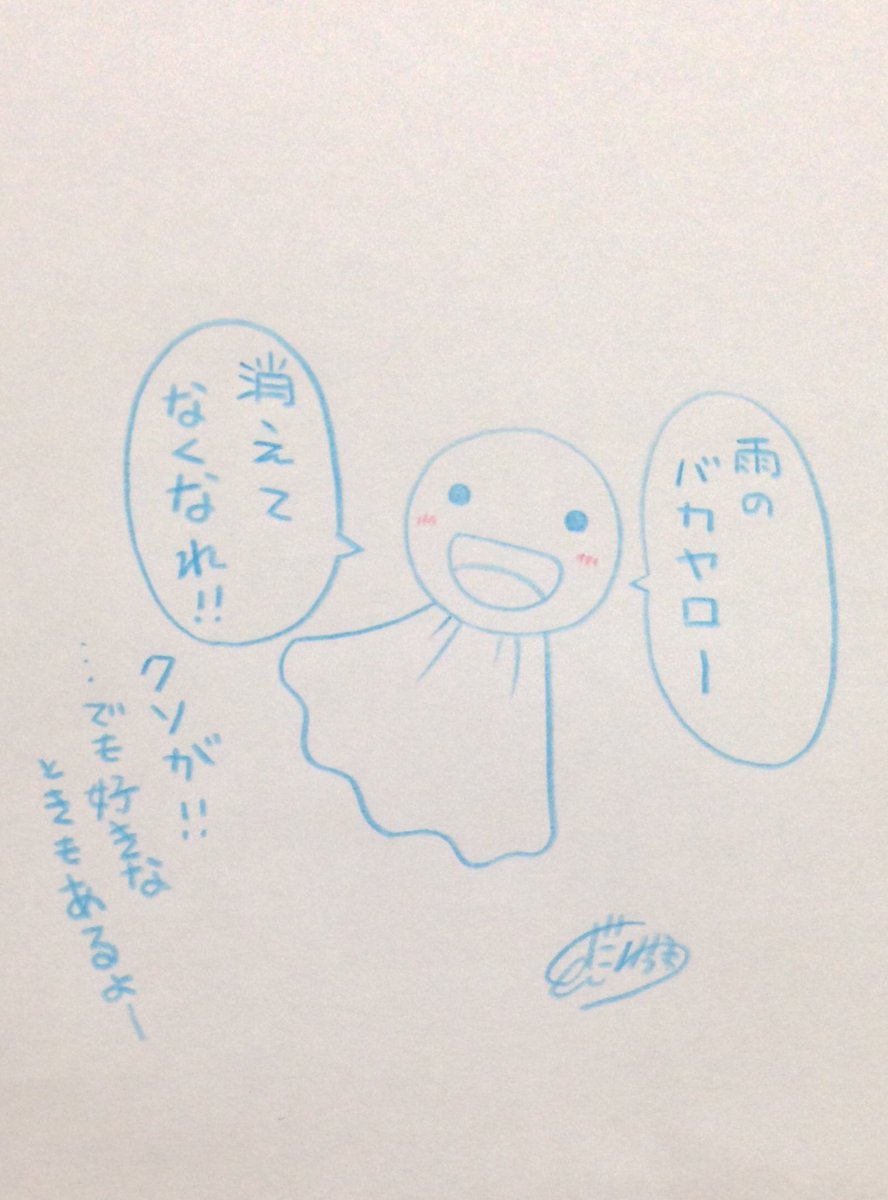 雨の
バカヤロー
消えて
なくなれ!!
クソが!!
…でも好きな
ときもあるよー